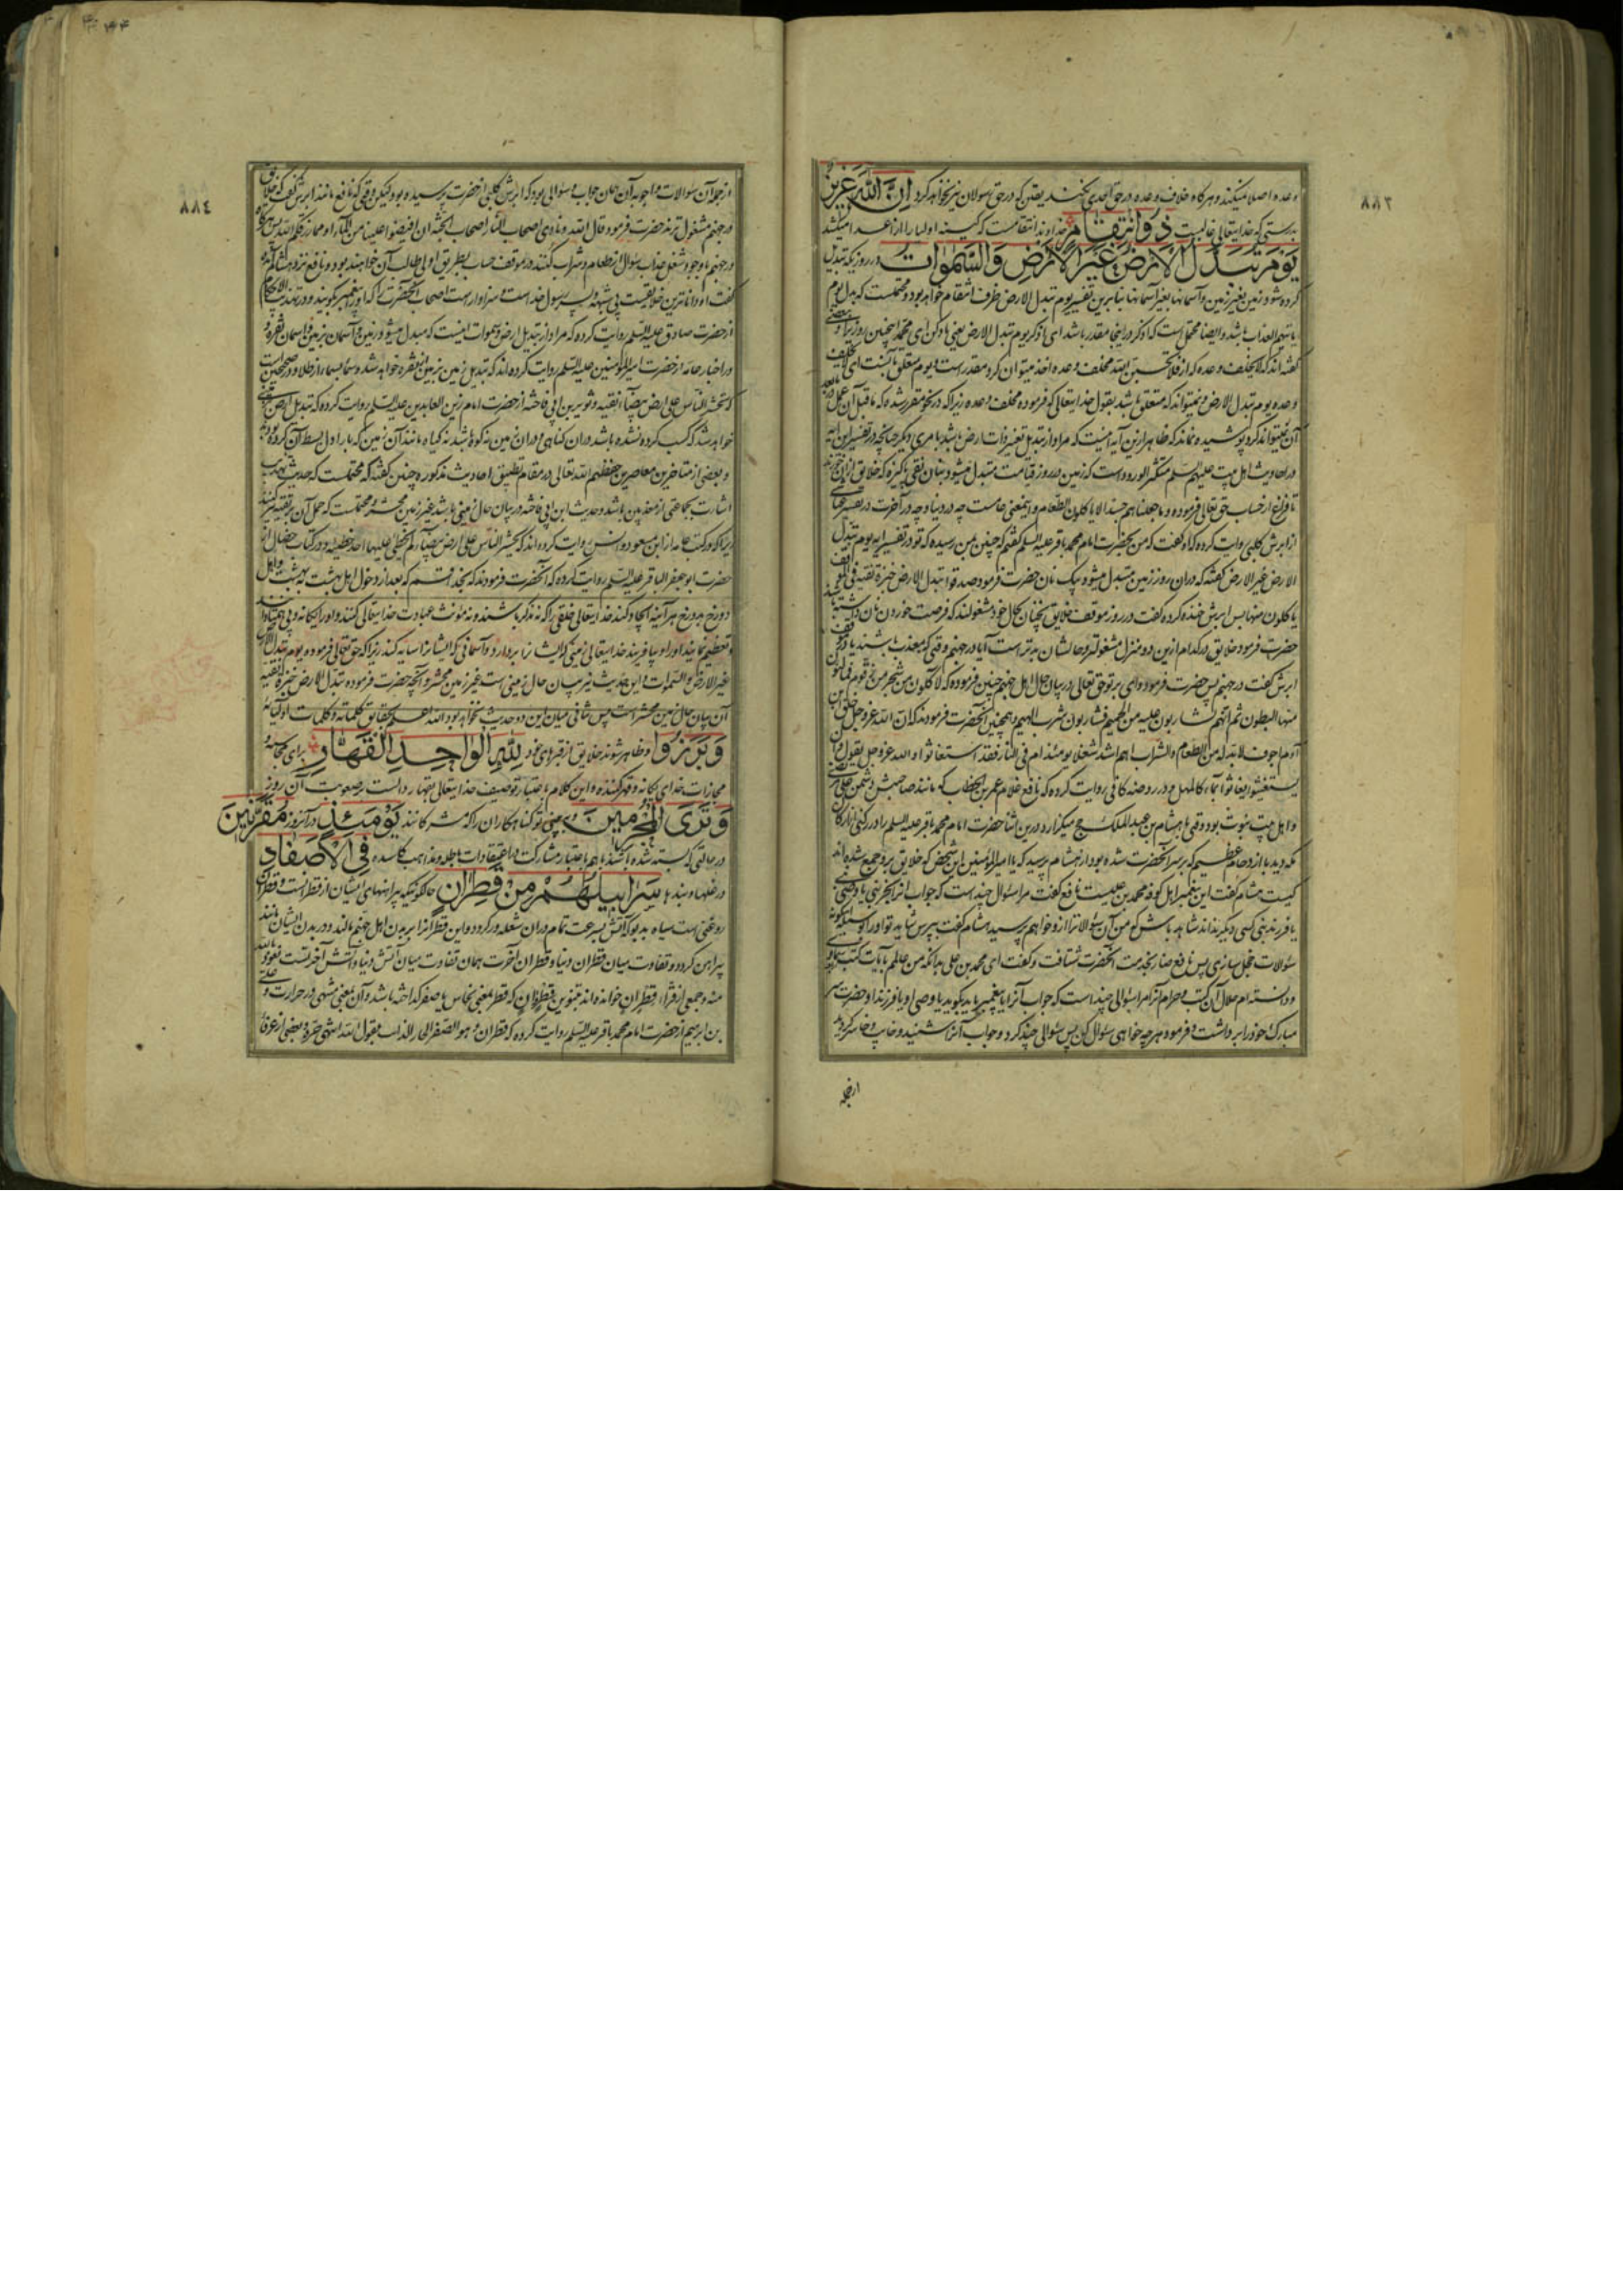 ٨٨٣
وعده اصلا میکنند و هرکاه خلاف وعده در حق احدی نکند یقین که در حق رسولان نیز نخواهد کرد اِنَّ اللّٰهَ عَزِیزٌ
بدرستی که خدایتعالی غالبست ذُو انتِقَامٍ خداوند انتقامست که کینه اولیا را از اعدا میکشد
یَوْمَ تُبَدَّلُ الْاَرْضُ غَیْرَ الْاَرْضِ وَالسَّمٰوَاتُ در روزیکه تبدیل
کرده شود زمین بغیر زمین و آسمانها بغیر آسمانها بنابرین تفسیر یوم تبدل الارض ظرف انتقام خواهد بود و محتملست که بدل یوم
یاتیهم العذاب باشد و ایضا محتمل است که اذکر در اینجا مقدر باشد ای اذکر یوم تبدل الارض یعنی یاد کن ای محمد اینچنین روز را و بعضی
کفته اند که لا یخلف وعده که از فلا تحسبن الله مخلف وعده اخذ میتوان کرد مقدر است و یوم متعلق بآنست ای لا یخلف
وعده یوم تبدل الارض و نمیتواند که متعلق باشد بقول خدایتعالی که فرموده مخلف وعده زیرا که در نحو مقرر شده که ماقبل ان عمل در مابعد
آن نمیتواند کرد پوشیده نماند که ظاهر ازین آیه اینست که مراد از تبدیل تغییر ذات ارض باشد بامری دیگر چنانچه در تفسیر این آیه
در احادیث اهل بیت علیهم السلم متکثر الورود است که زمین در روز قیامت متبدل میشود بنان نقی پاکیزه که خلایق از ان خورند
تا فراغ از حساب حق تعالی فرموده و ما جعلناهم جسدا لا یاکلون الطعام و اینمعنی عامست چه در دنیا و چه در آخرت در تفسیر عیاشی
از ابرش کلبی روایت کرده که او کفت که من بحضرت امام محمد باقر علیه السلم کفتم که چنین بمن رسیده که تو در تفسیر ایه یوم تبدل
الارض غیر الارض کفته که دران روز زمین متبدل میشود بیک نان حضرت فرمود صدقوا تبدل الارض خبزة نقیة فی الموقف
یاکلون منها پس ابرش خنده کرده کفت در روز موقف خلایق چنان بحال خود مشغولند که فرصت خوردن نان داشته باشند
حضرت فرمود خلایق در کدام ازین دو منزل مشغولتر و حالشان بدتر است آیا در جهنم وقتی که معذب باشند یا در موقف
ابرش کفت در جهنم پس حضرت فرمود وای بر تو حق تعالی در بیان حال اهل جهنم چنین فرموده که لا کلون من شجر من زقوم فمالئون
منها البطون ثم انهم لشاربون علیه من الحمیم فشاربون شرب الهیم و همچنین آنحضرت فرمودند که ان الله عز و جل خلق ابن
آدم اجوف لا بد له من الطعام والشراب اهم اشد شغلا یومئذ ام فی النار فقد استغاثوا والله عز و جل یقول و ان
یستغیثوا یغاثوا بماء کالمهل و در روضه کافی روایت کرده که نافع غلام عمر بن الخطاب که مانند صاحبش دشمن علی مرتضی
و اهل بیت نبوت بود وقتی با هشام بن عبدالملک حج میکزارد درین اثنا حضرت امام محمد باقر علیه السلم را در رکنی از ارکان
مکه دید با ازدحام عظیم که بر سر آنحضرت شده بود از هشام پرسید که یا امیر المؤمنین این شخص که خلایق برو جمع شده اند
کیست هشام کفت این پیغمبر اهل کوفه محمد بن علیست نافع کفت مرا سئوال چند است که جواب انرا بجز نبی یا وصی نبی
یا فرزند نبی کسی دیکر نداند شاهد باش که من آن سئوالات را ازو خواهم پرسید هشام کفت بپرس شاید تو او را
سئوالات خجل سازی پس نافع بخدمت آنحضرت شتافت و کفت ای محمد بن علی بدانکه من عالم بآیات کتب سماوی
و دانسته ام حلال آن کتب و حرام آنرا مرا سئوالی چند است که جواب آنرا یا پیغمبر باید بکوید یا وصی او یا فرزند او حضرت سر
مبارک خود را برداشت و فرمود هر چه خواهی سئوال کن پس سئوالی چند کرد و جواب آنرا شنید و خایب و خاسر کردید
ازجمله
٨٨٤
ازجمله آن سوالات و اجوبه آن همان جواب و سئوالی بود که ابرش کلبی از حضرت پرسیده بود لیکن وقتی که نافع مانند ابرش کفت که خلایق
در جهنم مشغول ترند حضرت فرمود قال الله و نادی اصحاب النار اصحاب الجنة ان افیضوا علینا من الماء او مما رزقکم الله پس هرکاه
در جهنم با وجود شغل عذاب سئوال از طعام و شراب کنند در موقف حساب بطریق اولی طالب آن خواهند بود و نافع نزد هشام آمده
کفت او داناترین خلایقست بی شبهه پسر رسول خداست و سزاوار هست اصحاب آنحضرت را که او را پیغمبر بکویند و در تهذیب الاحکام
از حضرت صادق علیه السلم روایت کرده که مراد از تبدیل ارض و سموات اینست که مبدل میشود زمین و آسمان بزمین و اسمان نقره و
در اخبار عامه از حضرت امیرالمؤمنین علیه السلم روایت کرده اند که تبدیل زمین بزمین از نقره خواهد شد و سما بسما از طلا و در صحیحین است
که تحشر الناس علی ارض بیضاء نقیة و ثویر بن ابی فاخته از حضرت امام زین العابدین علیه السلم روایت کرده که تبدیل ارض بارضی
خواهد شد که کسب کرده نشده باشد دران کناهی و دران زمین نه کوه باشد نه کیاه مانند آن زمین که بار اول بسط آن کرده بودند
و بعضی از متاخرین معاصرین حفظهم الله تعالی در مقام تطبیق احادیث مذکوره چنین کفته که محتملست که حدیث تهذیب
اشارت بجماعتی از معذبین باشد و حدیث ابن ابی فاخته در بیان حال زمینی باشد غیر زمین محشر و محتملست که حمل آن بر تقیه کنند
زیرا که در کتب عامه از ابن مسعود و انس روایت کرده اند که یحشر الناس علی ارض بیضاء لم یخطئ علیها احد خطیئة و در کتاب خصال از
حضرت ابو جعفر الباقر علیه السلم روایت کرده که آنحضرت فرمودند که بخدا قسم که بعد از دخول اهل بهشت ببهشت و اهل
دوزخ بدوزخ هر آینه ایجاد کند خدایتعالی خلقی را که نه مذکر باشند و نه مؤنث عبادت خدایتعالی کنند و او را بیکانه و بی همتا دانند
و تعظیم نمایند او را و بیافریند خدایتعالی زمینی که ایشانرا بردارد و آسمانی که ایشانرا سایه کند زیرا که حق تعالی فرموده و یوم تبدل الارض
غیر الارض والسموات و این حدیث نیز بیان حال زمینی است غیر زمین محشر و آنچه حضرت فرموده تبدل الارض خبزة نقیة
آن بیان حال زمین محشر است پس منافی میان این دو حدیث نخواهد بود الله اعلم بحقایق کلماته و کلمات اولیائه
وَبَرَزُوا و ظاهر شوند خلایق از قبرهای خود لِلّٰهِ الْوَاحِدِ الْقَهَّارِ برای محاسبه و
مجازات خدای یکانه و قهر کننده و این کلام باعتبار توصیف خدایتعالی بقهار دالست بر صعوبت آن روز
وَتَرَی الْمُجْرِمِینَ و ببینی تو کناهکاران را که مشرکانند یَوْمَئِذٍ در آنروز مُقَرَّنِینَ
در حالتی که بسته شده باشند با هم باعتبار مشارکت در اعتقادات باطله و مذاهب کاسده فِی الْاَصْفَادِ
در غلها و بندها سَرَابِیلُهُمْ مِنْ قَطِرَانٍ حالکونیکه پیراهنهای ایشان از قطرانست و قطران
روغنی است سیاه بدبو که آتش بسرعت تمام دران شعله ور کردد و این قطرانرا بر بدن اهل جهنم مالند و در بدن ایشان مانند
پیراهن کردد و تفاوت میان قطران دنیا و قطران آخرت همان تفاوت میان آتش دنیا و آتش آخرتست نعوذ بالله
منه و جمعی از قراء قِطْرٍ اٰنٍ خوانده اند بتنوین قطر و آن که قطر بمعنی نحاس یا صفر کداخته باشد و آن بمعنی منتهی در حرارت و علی
بن ابرهیم از حضرت امام محمد باقر علیه السلم روایت کرده که قطران هو الصفر الحار الذائب و یقول الله انتهی حره و بعضی از عرفا